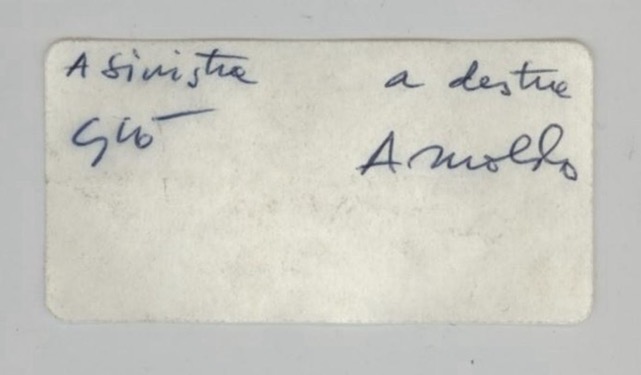 A sinistra a destra
Giò Arnoldo